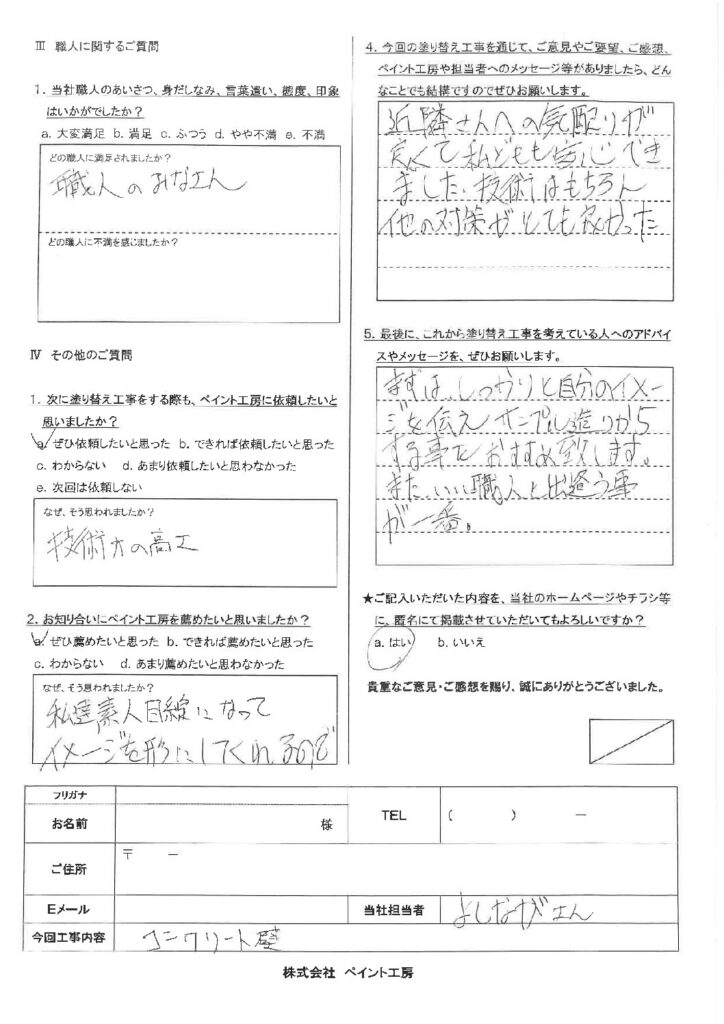 Ⅲ 職人に関するご質問
1. 当社職人のあいさつ、身だしなみ、言葉遣い、態度、印象
はいかがでしたか？
a. 大変満足 b. 満足 c. ふつう d. やや不満 e. 不満
どの職人に満足されましたか？
職人のみなさん
どの職人に不満を感じましたか？
Ⅳ その他のご質問
1. 次に塗り替え工事をする際も、ペイント工房に依頼したいと
思いましたか？
a. ぜひ依頼したいと思った b. できれば依頼したいと思った
c. わからない d. あまり依頼したいと思わなかった
e. 次回は依頼しない
なぜ、そう思われましたか？
技術力の高さ
2. お知り合いにペイント工房を薦めたいと思いましたか？
a. ぜひ薦めたいと思った b. できれば薦めたいと思った
c. わからない d. あまり薦めたいと思わなかった
なぜ、そう思われましたか？
私達素人目線になって
イメージを形にしてくれるので
4. 今回の塗り替え工事を通じて、ご意見やご要望、ご感想、
ペイント工房や担当者へのメッセージ等がありましたら、どん
なことでも結構ですのでぜひお願いします。
近隣さんへの気配りが
良くて私どもも安心でき
ました。技術はもちろん
他の対策がとても良かった
5. 最後に、これから塗り替え工事を考えている人へのアドバイ
スやメッセージを、ぜひお願いします。
まずは、しっかりと自分のイメー
ジを伝えサンプル造りから
する事をおすすめ致します。
また、いい職人と出逢う事
が一番。
★ご記入いただいた内容を、当社のホームページやチラシ等
に、匿名にて掲載させていただいてもよろしいですか？
a. はい b. いいえ
貴重なご意見・ご感想を賜り、誠にありがとうございました。
フリガナ
お名前 様 TEL ( ) －
ご住所 〒 －
Eメール 当社担当者 よしながさん
今回工事内容 コンクリート壁
株式会社 ペイント工房